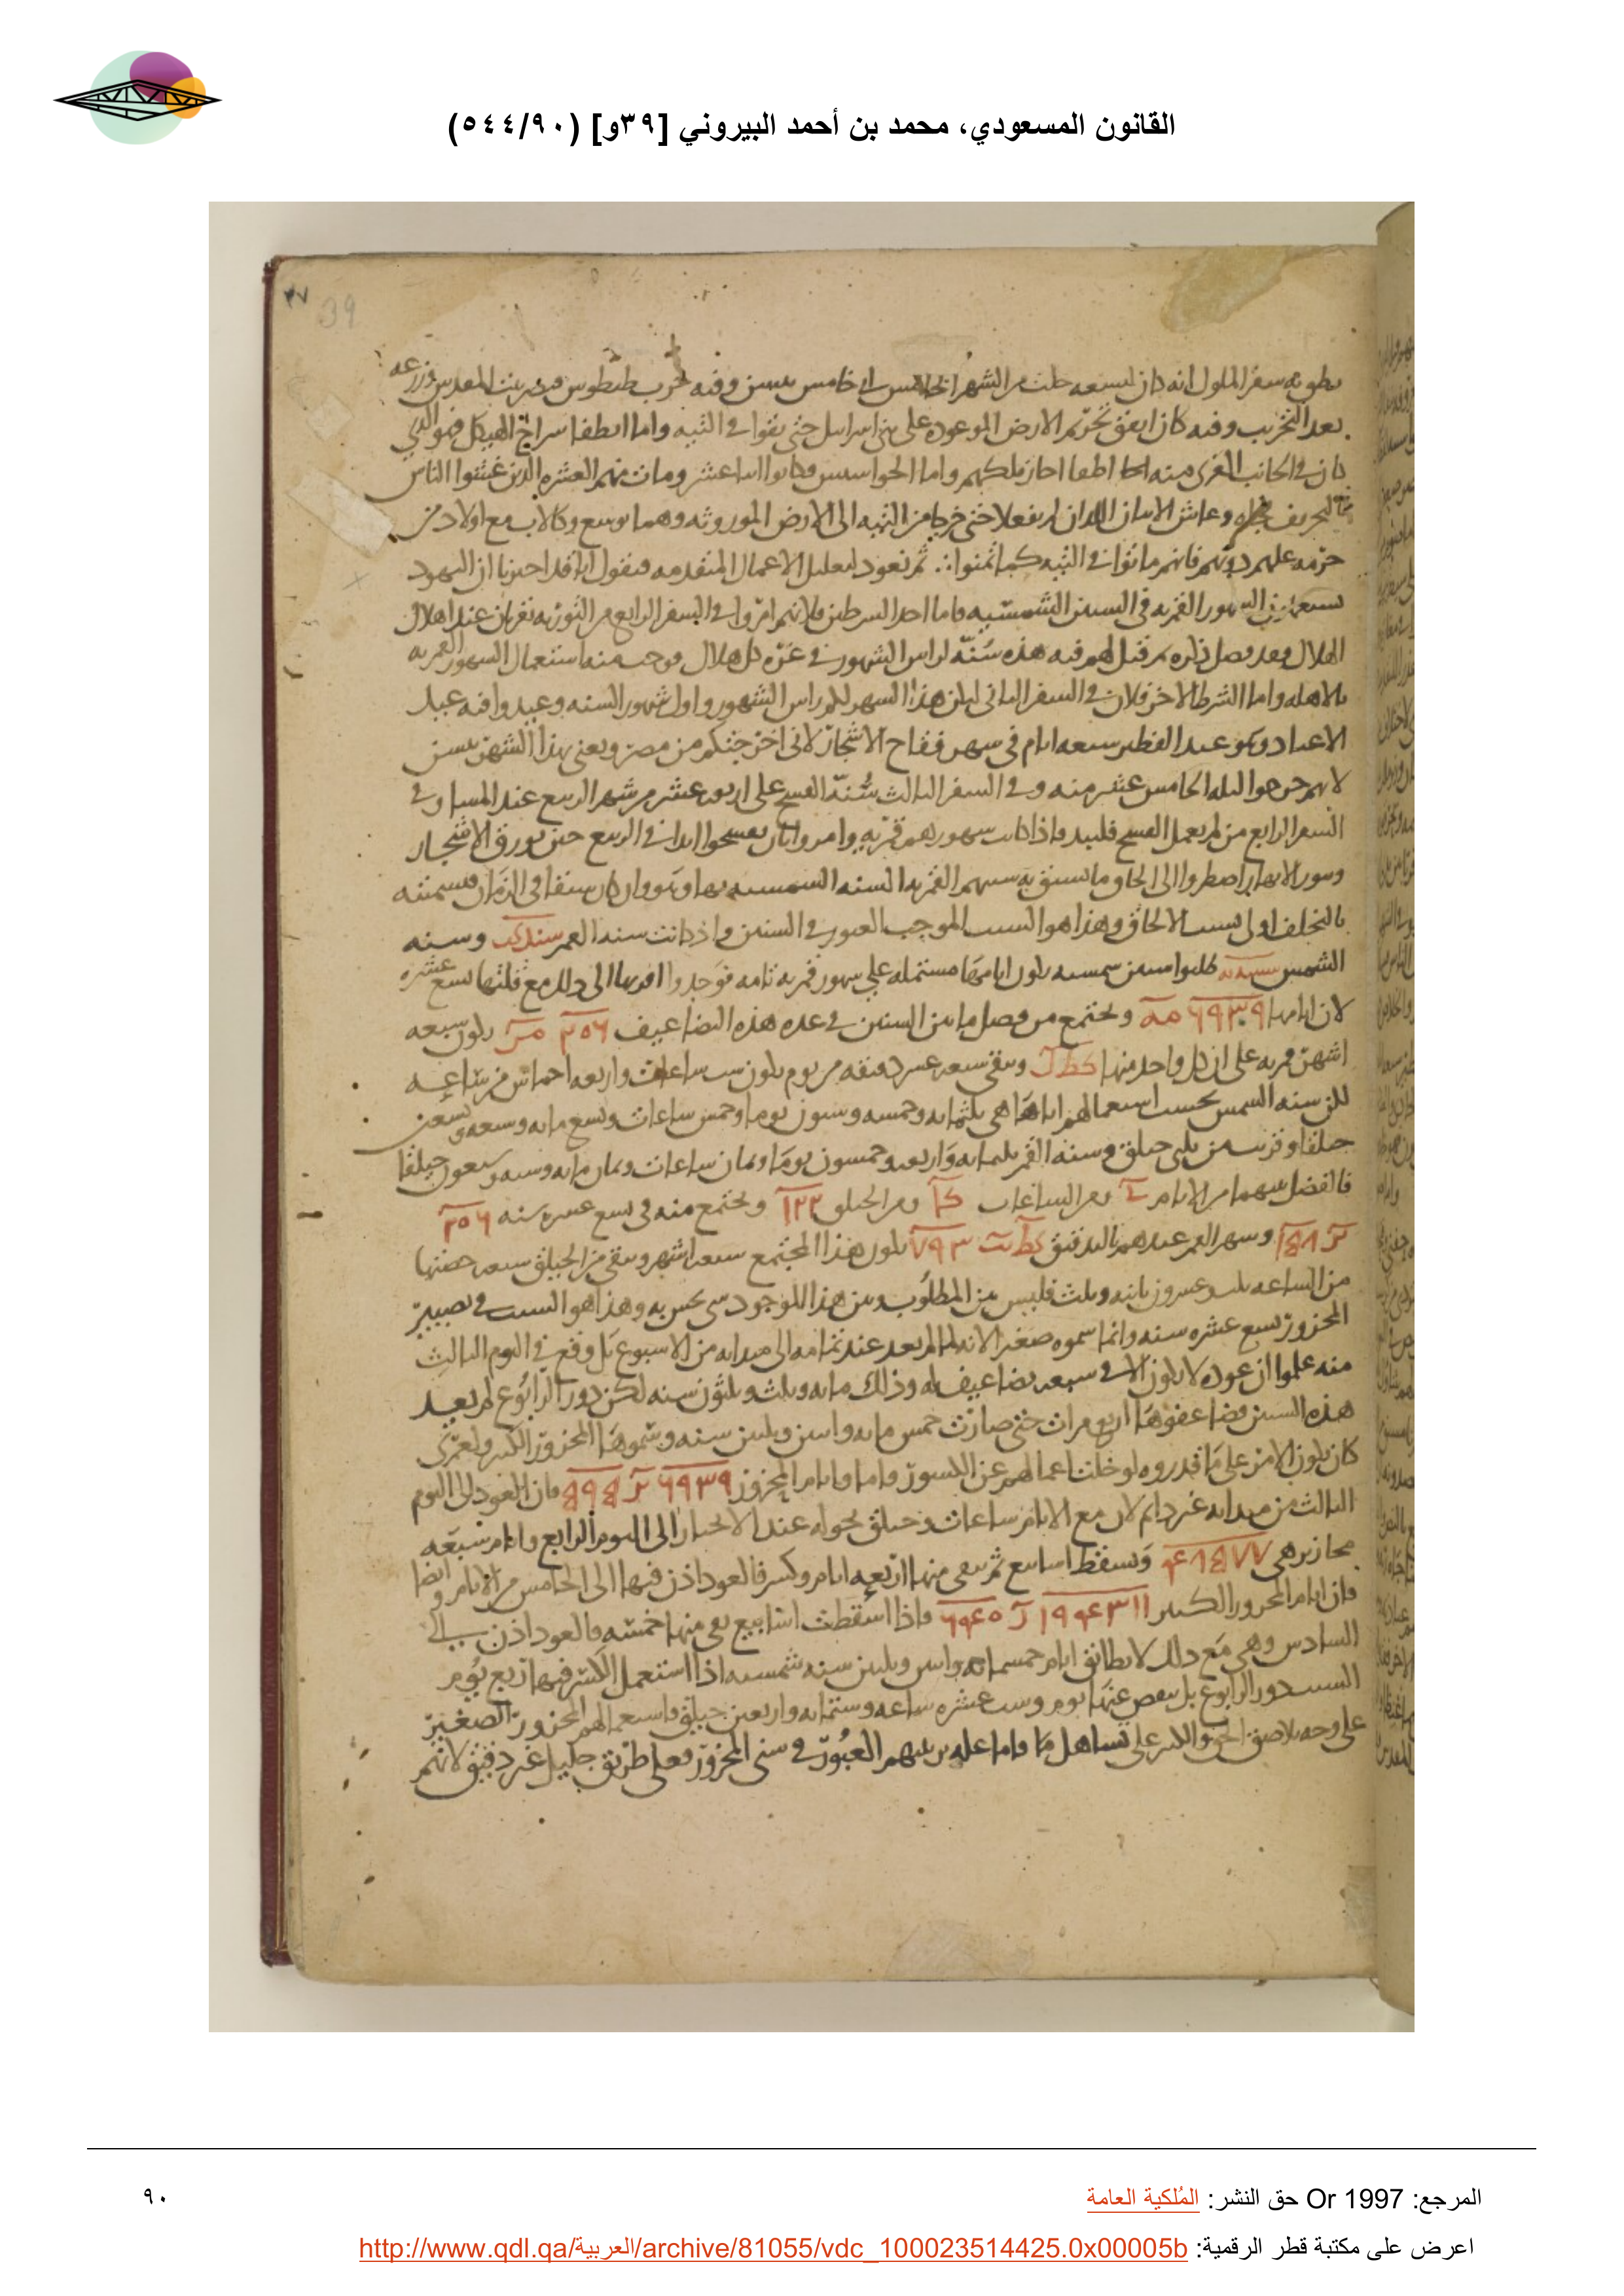 القانون المسعودي، محمد بن أحمد البيروني [٣٩و] (٥٤٤/٩٠)
٣٧
39
بعد التخريب وفيه كان اتفق تحريم الارض الموعوده على بنى اسراىل حتى بقوا فى التيه واما انطفا سراج الهيكل فهو الذى
كان فى الجانب الغربى منه واما الحواسيس فكانوا اثنا عشر ومات منهم العشره الذين غشوا الناس
وعاش الاثنان اللذان لم يفعلا حتى خرجا من التيه الى الارض الموروثه وهما يوشع وكالاب مع اولاد من
حرمه عليهم دونهم فانهم ماتوا فى التيه كما تمنوا ثم نعود لتعليل الاعمال المتقدمه فنقول انا قد اخبرنا ان اليهود
الشهور القمريه فى السنين الشمسيه فاما احد الشرطين فلانهم امروا فى السفر الرابع من التوريه بقربان عند اهلال
الهلال وبعد فصل ذكره ثم قيل لهم فيه هذه سنة لراس الشهور فى غرة كل هلال فوجب منه استعمال الشهور القمريه
بالاهله واما الشرط الاخر فلان فى السفر الثانى ليكن هذا الشهر لكم راس الشهور واول شهور السنه وعيدوا فيه عيد
الاعياد وهو عيد الفطير سبعه ايام فى شهر فقاح الاشجار لانى اخرجتكم من مصر ويعنى بهذا الشهر نيسن
لانهم خرجوا ليله الخامس عشر منه وفى السفر الثالث سنة الفسح على اربعه عشر من شهر الربيع عند المسا وفى
السفر الرابع من لم يعمل الفسح فليبد واذا كانت شهورهم قمريه وامروا بان يفسحوا ابدا فى الربيع حين يورق الاشجار
اضطروا الى الحاق ما تسبق به سنتهم القمريه السنه الشمسيه بها وهو وان كان سبقا فى الزمان فتسميته
بالتخلف اولى لسبب الالحاق وهذا هو السبب الموجب العبور فى السنين واذ كانت سنه القمر شند كب وسنه
الشمس شسه يه طلبوا سنين شمسيه يكون ايامها مشتمله على شهور قمريه تامه فوجدوا اقربها الى ذلك مع قلتها تسع عشره
لان ايامها ٦٩٣٩ مه ويجتمع من فضل ما بين السنين فى عده هذه التضاعيف ٢٠٦ يكون سبعه
اشهر قمريه على ان كل واحد منها كط ل ويبقى سبعه عشر دقيقه من يوم يكون ست ساعات واربعه اخماس من ساعه
لكن سنه الشمس بحسب استعمالهم اياها هى ثلثمايه وخمسه وستون يوما وخمس ساعات وتسع مايه وسبعه وتسعين
حيلقا وسنه القمر ثلثمايه واربعه وخمسون يوما وثمان ساعات وثمان مايه وسته وسبعون حيلقا
فالفضل بينهما من الايام ى ومن الساعات كا ومن الحيلق ١٢٢ ويجتمع منه فى تسع عشره سنه ٢٠٦
وشهر القمر عندهم بالتدقيق كط يب ٧٩٣ يكون هذا المجتمع سبعه اشهر ويبقى من الحيلق سبعه حصتها
من الساعه ثلث وعشرون ثانيه وثلث فليس بين المطلوب وبين هذا الموجود شى يحس به وهذا هو السبب فى تصيير
المحزور تسع عشره سنه وانما سموه صغيرا لانه لما لم يعد عند تمامه الى مبدايه من الاسبوع بل وقع فى اليوم الثالث
منه علموا ان عوده لا يكون الا فى سبعه تضاعيف له وذلك مايه وثلث وثلثون سنه لكن دور الرابوع لم يعد
هذه السنين فضاعفوها اربع مرات حتى صارت خمس مايه واثنين وثلثين سنه وسموها المحزور الكبير ولعمرى
كان يكون الامر على ما قدروه لو خلت اعمالهم عن الكسور واما ايام المحزور ٦٩٣٩ فان العود الى اليوم
الثالث من مبدايه غير دايم لان مع الايام ساعات وحيلق يحوله عند الانجبار الى اليوم الرابع وايام سبعه
محازير هى ويسقط اسابيع ثم يبقى منها اربعه ايام وكسر فالعود اذن فيها الى الخامس من الايام وايضا
فان ايام المحزور الكبير فاذا اسقطت اسابيع بقى منها خمسه فالعود اذن الى
السادس وهى مع ذلك لا يطابق ايام خمسمايه واثنين وثلثين سنه شمسيه اذا استعمل الكسر فيها ربع يوم
لسبب دور الرابوع بل ينقص عنها يوم وست عشره ساعه وستمايه واربعين حيلق فاستعمالهم المحزور الصغير
على وجه يلاصق الحق والكبير على تساهل ما واما عله ترتيبهم العبور فى سنى المحزور فعلى طريق جليل غير دقيق لانهم
المرجع: Or 1997 حق النشر: المُلكية العامة
٩٠
اعرض على مكتبة قطر الرقمية: http://www.qdl.qa/العربية/archive/81055/vdc_100023514425.0x00005b